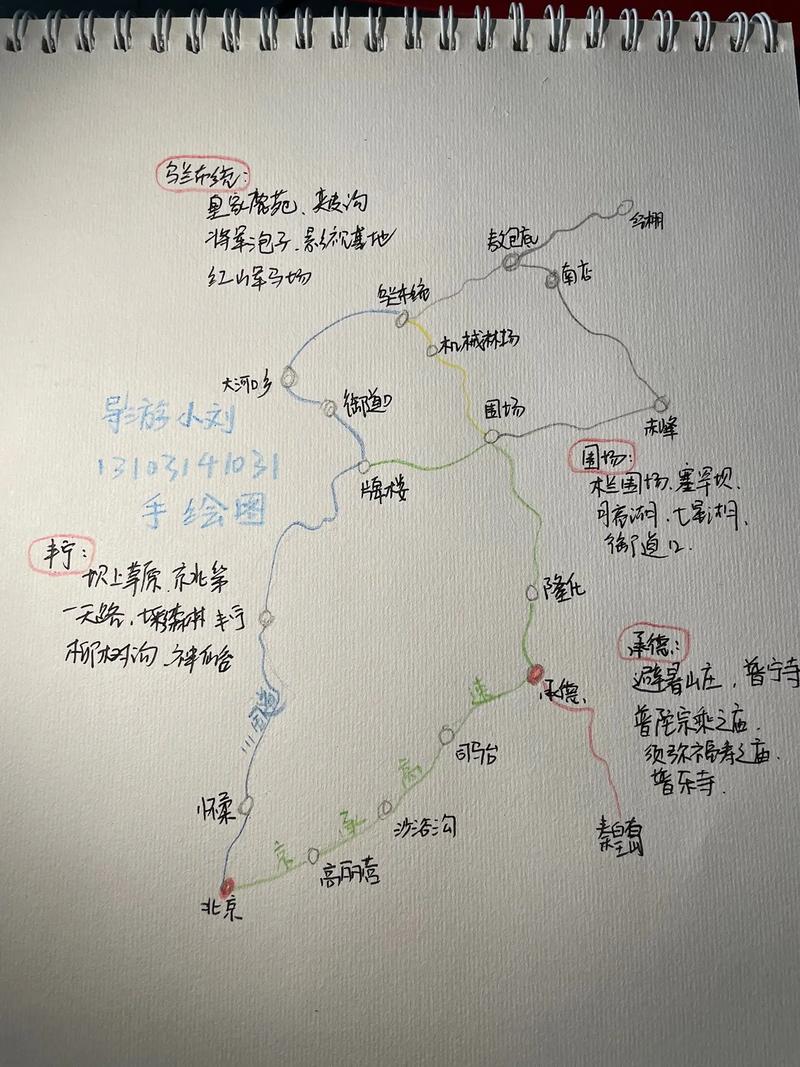 乌兰布统:
皇家鹿苑、夹皮沟
将军泡子、影视基地
红山军马场
经棚
敖包底
南店
乌兰布统
机械林场
大河口乡
御道口
围场
赤峰
导游小刘
13103141031
手绘图
牌楼
围场:
木兰围场、塞罕坝、
月亮湖、七星湖、
御道口.
丰宁:
坝上草原、京北第
一天路、森林 丰宁
柳树沟、神仙台
隆化
承德:
避暑山庄, 普宁寺
普陀宗乘之庙.
须弥福寿之庙.
普乐寺.
承德.
一一一国道
京承高速
司马台
沙峪沟
怀柔
高丽营
秦皇岛
北京